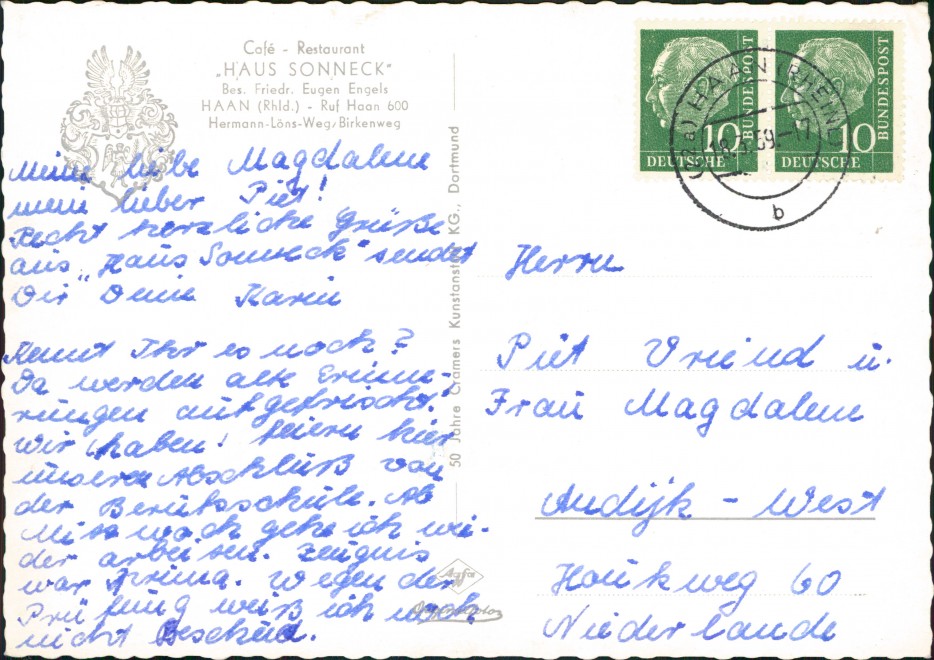 Café - Restaurant
„HAUS SONNECK"
Bes. Friedr. Eugen Engels
HAAN (Rhld.) - Ruf Haan 600
Hermann-Löns-Weg/Birkenweg
Meine liebe Magdalene
mein lieber Piet!
Recht herzliche Grüße
aus "Haus Sonneck" sendet
Dir Deine Karin
Kennt Ihr es noch?
Da werden alte Erinne-
rungen aufgefrischt.
Wir (haben) feiern hier
unseren Abschluß von
der Berufsschule. Ab
Mittwoch gehe ich wie-
der arbeiten. Zeugnis
war prima. Wegen der
Prüfung weiß ich noch
nicht Bescheid.
50 Jahre Cramers Kunstanstalt KG., Dortmund
Agfa
DEUTSCHE
10
BUNDESPOST
DEUTSCHE
10
BUNDESPOST
HAAN (RHEINL)
59.-7
b
Herrn
Piet Vriend u.
Frau Magdalene
Andijk - West
Houkweg 60
Niederlande